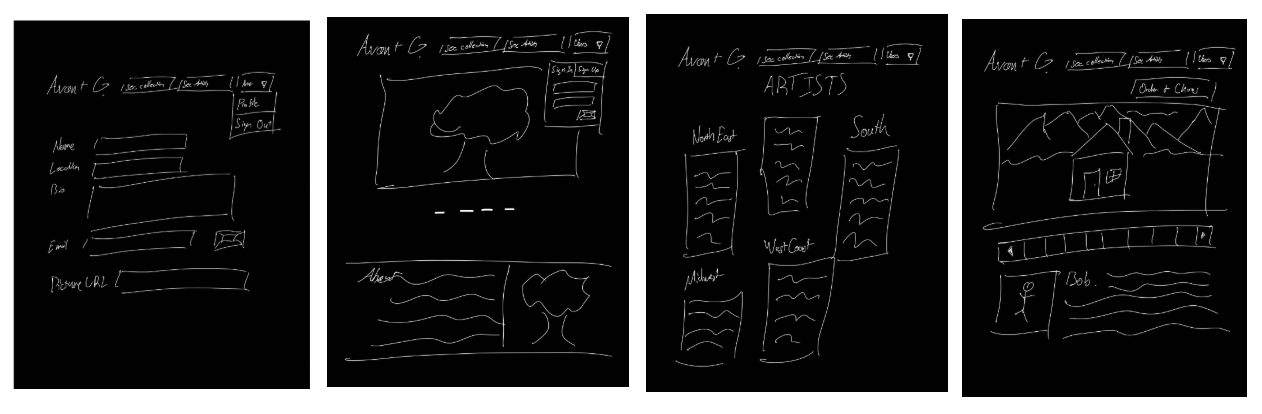 Avant G. See collection See Artists
Profile
Sign Out
Name
Location
Bio
Email
Picture URL
Avant G. See collection See Artists User
Sign In Sign Up
About
Avant G. See collection See Artists User
ARTISTS
North East
South
Midwest
West Coast
Avant G. See collection See Artists User
Order
Bob.